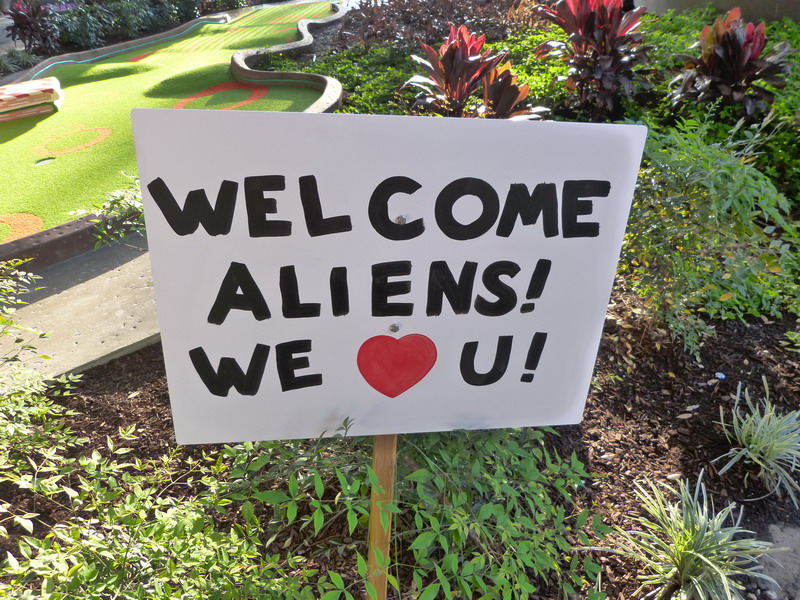 WELCOME
ALIENS!
WE ❤ U!